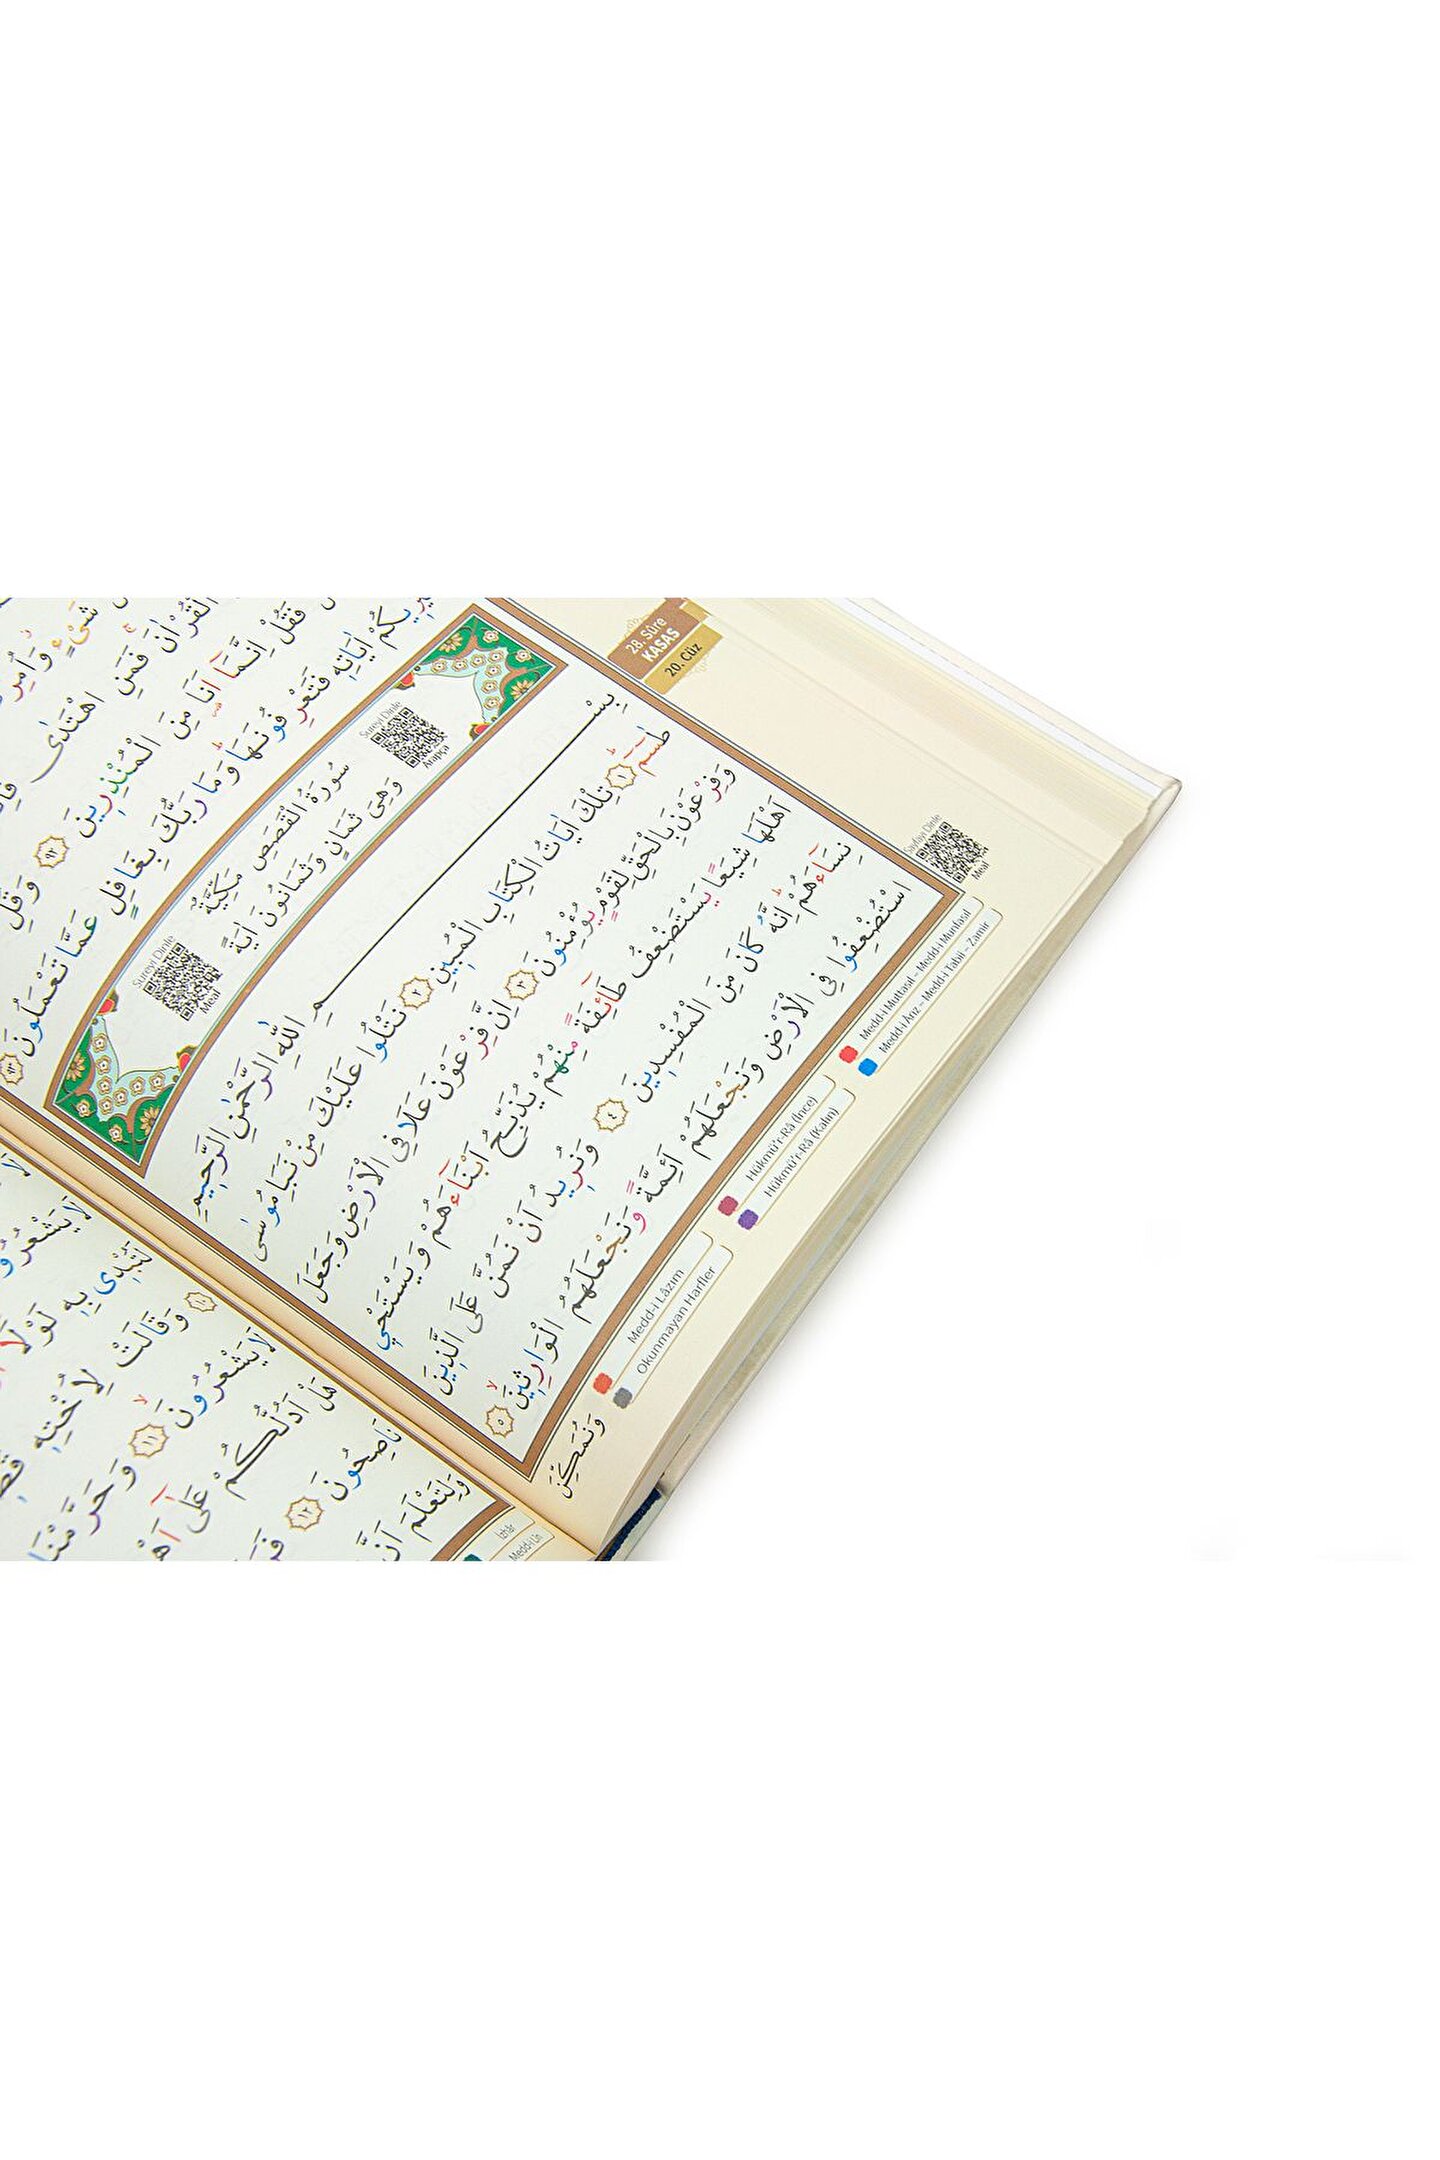 28. Sûre
KASAS
20. Cüz
شَیْءٍ وَاُمِرْ
الْقُرْاٰنَ فَمَنِ اهْتَدٰى
فَقُلْ اِنَّمَٓا اَنَا مِنَ الْمُنْذِرٖينَ ﴿٩٢﴾ وَقُلِ
يكُمْ اٰيَاتِهٖ فَتَعْرِفُونَهَا وَمَا رَبُّكَ بِغَافِلٍ عَمَّا تَعْمَلُونَ ﴿٩٣﴾
Sureyi Dinle
Arapça
سُورَةُ الْقَصَصِ مَكِّيَّةٌ
وَهِىَ ثَمَانٍ وَثَمَانُونَ اٰيَةً
Sureyi Dinle
Meal
بِسْمِ اللّٰهِ الرَّحْمٰنِ الرَّحٖيمِ
طٰسٓمٓ ﴿١﴾ تِلْكَ اٰيَاتُ الْكِتَابِ الْمُبٖينِ ﴿٢﴾ نَتْلُوا عَلَيْكَ مِنْ نَبَاِ مُوسٰى
وَفِرْعَوْنَ بِالْحَقِّ لِقَوْمٍ يُؤْمِنُونَ ﴿٣﴾ اِنَّ فِرْعَوْنَ عَلَا فِى الْاَرْضِ وَجَعَلَ
اَهْلَهَا شِيَعًا يَسْتَضْعِفُ طَٓائِفَةً مِنْهُمْ يُذَبِّحُ اَبْنَٓاءَهُمْ وَيَسْتَحْيٖ
نِسَٓاءَهُمْ اِنَّهُ كَانَ مِنَ الْمُفْسِدٖينَ ﴿٤﴾ وَنُرٖيدُ اَنْ نَمُنَّ عَلَى الَّذٖينَ
اسْتُضْعِفُوا فِى الْاَرْضِ وَنَجْعَلَهُمْ اَئِمَّةً وَنَجْعَلَهُمُ الْوَارِثٖينَ ﴿٥﴾
وَنُمَكِّنَ
Sayfayı Dinle
Meal
Medd-i Muttasıl – Medd-i Munfasıl
Medd-i Arız – Medd-i Tabiî – Zamir
Hükmü'r-Râ (İnce)
Hükmü'r-Râ (Kalın)
Medd-i Lâzım
Okunmayan Harfler
لَا يَشْعُرُو
لَتُبْدٖى بِهٖ لَوْلَٓا
وَقَالَتْ لِاُخْتِهٖ
لَا يَشْعُرُونَ ﴿١١﴾ وَحَرَّمْنَا
هَلْ اَدُلُّكُمْ عَلٰٓى اَهْ
نَاصِحُونَ ﴿١٢﴾
وَلِتَعْلَمَ اَنَّ
İzhâr
Medd-i Lîn